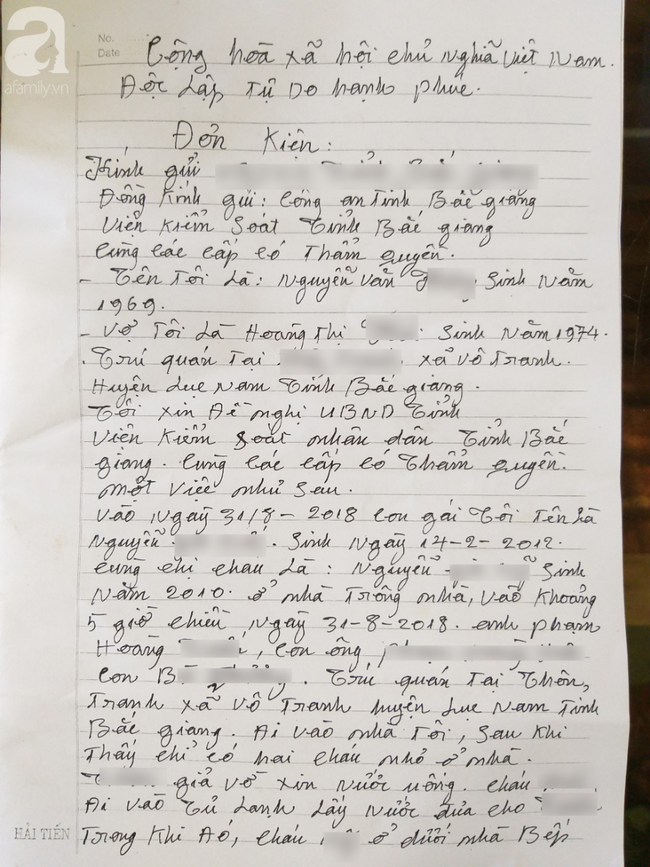 a
afamily.vn
No.
Date
Cộng hoà xã hội chủ nghĩa Việt Nam.
Độc Lập Tự Do hạnh phúc.
Đơn Kiện:
Kính gửi
Đồng Kính gửi: Công an Tỉnh Bắc giang
Viện Kiểm Soát Tỉnh Bắc giang
Cùng các cấp có Thẩm quyền.
- Tên Tôi Là: Nguyễn Văn Sinh năm
1969.
- Vợ Tôi Là Hoàng Thị Sinh năm 1974.
. Trú quán Tại xã Vô Tranh.
Huyện Lục Nam Tỉnh Bắc giang.
Tôi xin Đề nghị UBND Tỉnh
Viện Kiểm Soát nhân dân Tỉnh Bắc
giang. Cùng các cấp có Thẩm quyền.
một việc như sau.
Vào ngày 31/8-2018 Con gái Tôi Tên Là
Nguyễn . Sinh ngày 14-2-2012.
Cùng chị cháu Là: Nguyễn Sinh
Năm 2010. ở nhà Trông nhà, Vào Khoảng
5 giờ chiều ngày 31-8-2018. anh phạm
Hoàng , Con ông
Con B . Trú quán Tại Thôn,
Tranh xã Vô Tranh huyện Lục Nam Tỉnh
Bắc giang. Đi vào nhà Tôi, Sau Khi
Thấy chỉ có hai cháu nhỏ ở nhà.
T giả vờ xin nước uống. cháu
Đi vào Tủ Lạnh Lấy nước đưa cho
Trong Khi Đó, cháu ở dưới nhà Bếp
HẢI TIẾN